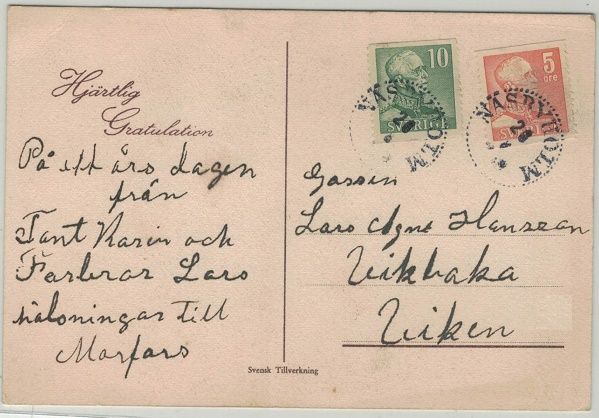 Hjärtlig
Gratulation
På ett års dagen
från
Tant Karin och
Farbror Lars
hälsningar till
Morfars
Svensk Tillverkning
10
SVERIGE
5
öre
NÄSBYHOLM
28
NÄSBYHOLM
28
Gossen
Lars Agne Hansson
Vikbaka
Viken